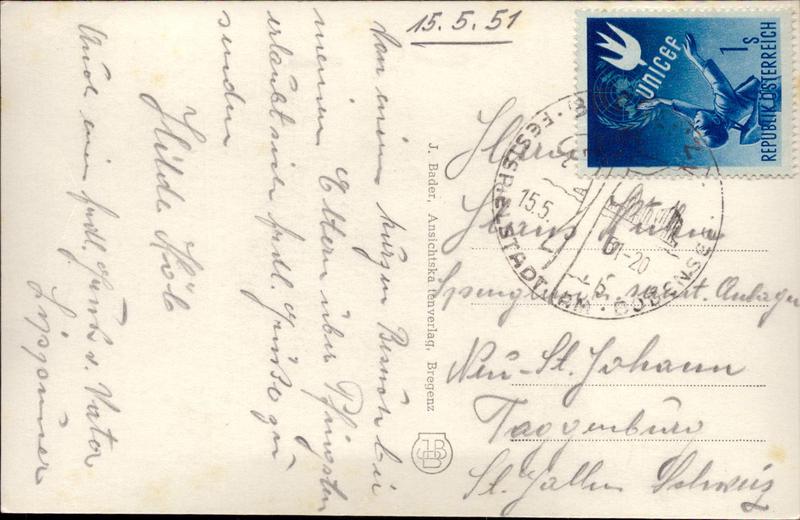 15.5.51
Von einem kurzen Besuch bei
meinen Eltern über Pfingsten
erlaubt sich frdl. Grüße zu
senden
Hilde Kolb
Auch ein frdl. Gruß v. Vater
J. Bader, Ansichtskartenverlag, Bregenz
JBB
unicef
1 S
REPUBLIK ÖSTERREICH
FESTSPIELSTADT AM BODENSEE
15.5. 51-20
Herrn
Hans
Spenglerei sanit. Anlagen
Neu-St. Johann
Toggenburg
St. Gallen Schweiz